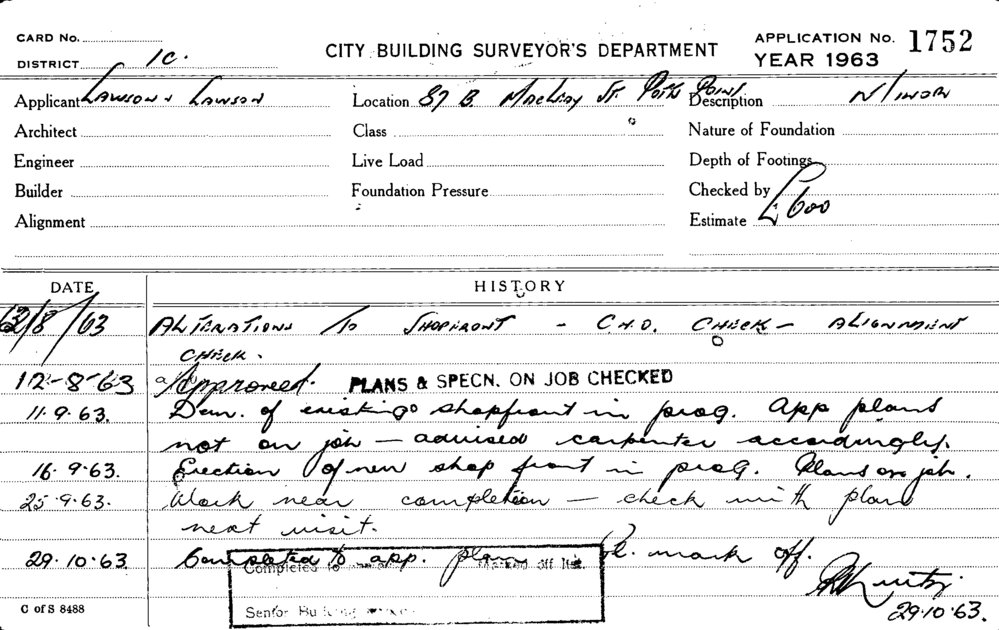 CARD No.
DISTRICT 1C.
CITY BUILDING SURVEYOR'S DEPARTMENT
APPLICATION No. 1752
YEAR 1963
Applicant Lawson & Lawson
Location 87 B Macleay St. Potts Point
Description
Architect
Class
Nature of Foundation
Engineer
Live Load
Depth of Footings
Builder
Foundation Pressure
Checked by
Alignment
Estimate £600
DATE
HISTORY
/8/63 ALTERATIONS To SHOPFRONT - C.H.O. CHECK - ALIGNMENT
CHECK.
12-8-63 Approved. PLANS & SPECN. ON JOB CHECKED
11.9.63. Dem. of existing shopfront in prog. App plans
not on job — advised carpenter accordingly.
16.9.63. Erection of new shop front in prog. Plans on job.
25.9.63. Work near completion — check with plans
next visit.
29.10.63. Completed to app. plan mark off.
Completed to Marked off
Senior
29.10.63.
C of S 8488